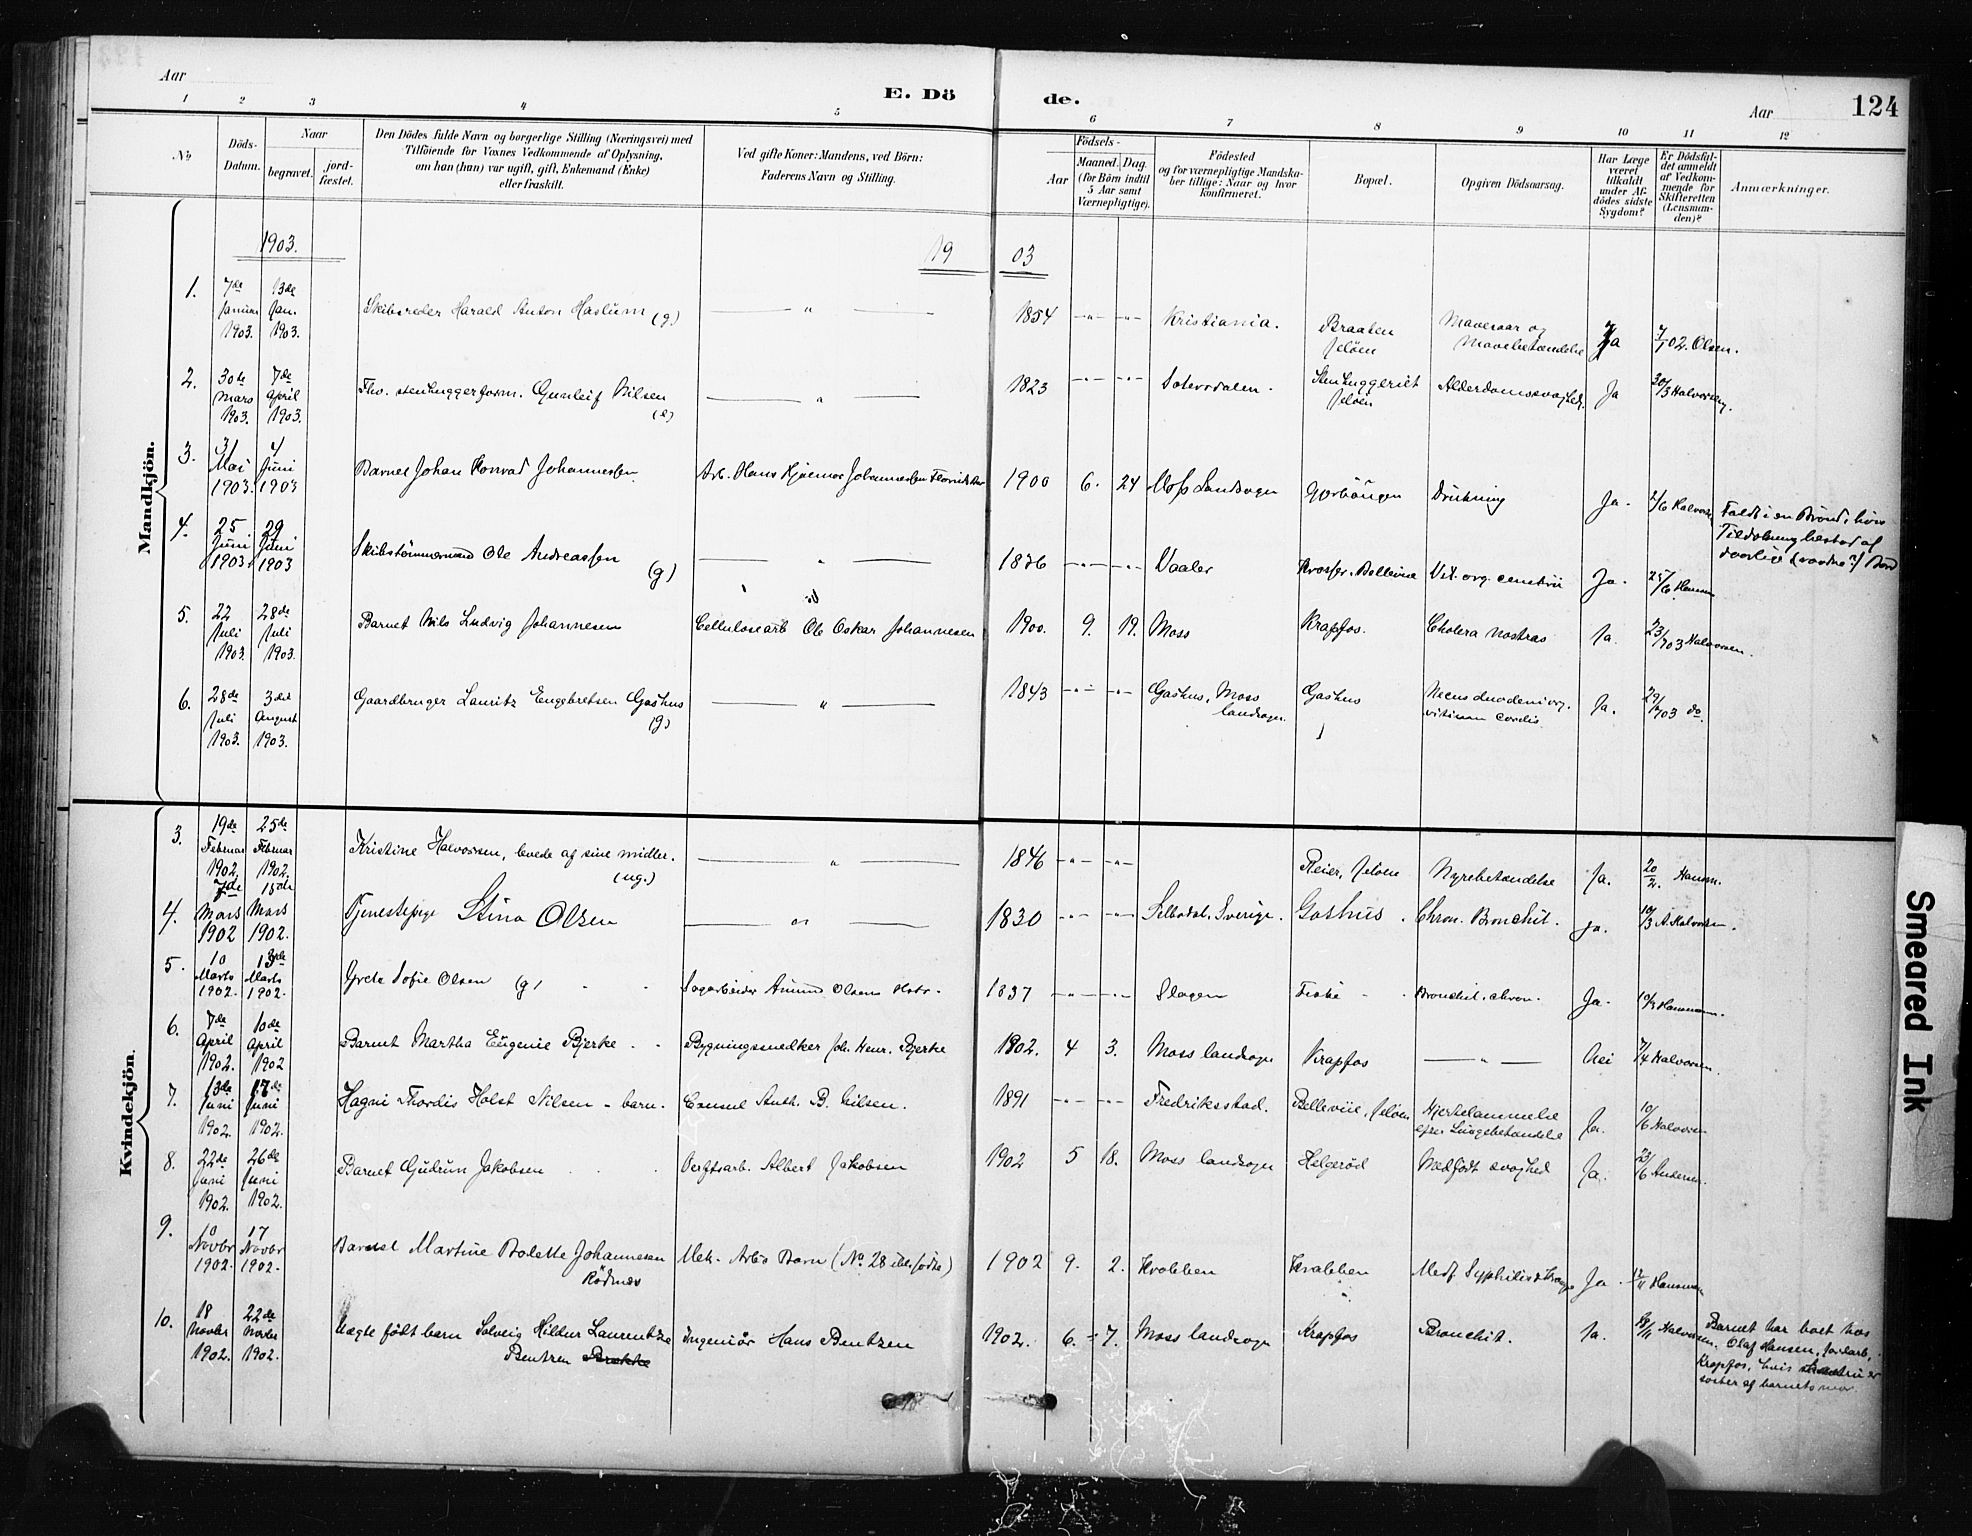 Aar
E. Dö
de.
Aar
124
1 2 3 4 5 6 7 8 9 10 11 12
No
Döds-
Datum.
Naar
begravet.
jord-
fæstet.
Den Dödes fulde Navn og borgerlige Stilling (Næringsvei) med
Tilföiende for Voxnes Vedkommende af Oplysning,
om han (hun) var ugift, gift, Enkemand (Enke)
eller fraskilt.
Ved gifte Koner: Mandens, ved Börn:
Faderens Navn og Stilling.
Födsels-
Aar
Maaned.
Dag.
(for Börn indtil
5 Aar samt
Værnepligtige).
Födested
og for værnepligtige Mandska-
ber tillige: Naar og hvor
konfirmeret.
Bopæl.
Opgiven Dödsaarsag.
Har Læge
været
tilkaldt
under Af-
dödes sidste
Sygdom?
Er Dödsfal-
det anmeldt
af Vedkom-
mende for
Skifteretten
(Lensman-
den)?
Anmærkninger.
Mandkjön.
1903.
19
03
1.
7de
Januar
1903.
13de
Jan.
1903.
Skibsreder Harald Anton Haslum (g)
— " —
1854
Kristiania.
Braaten
Jeløen
Mavesaar og
Mavebetændelse
Ja
7/1 02. Olsen.
2.
30te
Mars
1903.
7de
April
1903.
Fhv. stenhuggerform. Gunleif Nilsen
(e)
— " —
1823
Setersdalen.
Stenhuggeriet
Jeløen
Alderdomssvaghed.
Ja
30/3 Halvorsen.
3.
31
Mai
1903.
4
Juni
1903
Barnet Johan Konrad Johannessen
Arb. Hans Hjalmar Johannessen
1900
6.
24
Moss Landsogn
Drukning
Ja.
2/6 Halvorsen
Faldt i en Brønd, hvis
Tildækning bestod af
daarlige (raadne?) Bord
4.
25
Juni
1903.
29
Juni
1903
Skibstømmermand Ole Andreassen
(g)
— " —
1836
Vaaler
Bellevue
Vit. org. centri
Ja.
25/6 Hansen
5.
22
Juli
1903.
28de
Juli
1903.
Barnet Nils Ludvig Johannesen
Cellulosearb Ole Oskar Johannesen
1900.
9.
19.
Moss
Krapfos.
Cholera nostras
Ja.
23/7 03 Halvorsen.
6.
28de
Juli
1903.
3die
August
1903.
Gaardbruger Lauritz Engebretsen Gashus
(g)
— " —
1843
Gashus, Moss
landsogn.
Gashus
vitium cordis
Ja.
29/7 03 do.
Kvindekjön.
3.
19de
Februar
1902.
25de
Februar
1902.
Kristine Halvorsen, levede af sine midler.
(ug.)
— " —
1846
Reier, Jeløen
Nyrebetændelse
Ja.
20/2. Hansen.
4.
7de
Mars
1902
15de
Mars
1902.
Tjenestepige Stina Olsen
— " —
1830
Selbodal, Sverige.
Gashus.
Chron. Bronchit.
Ja.
10/3 A. Halvorsen.
5.
10
Marts
1902.
13de
Marts
1902.
Grete Sofie Olsen (g)
Sagarbeider Amund Olsens Hstr.
1837
Slagen
Tronchit. chron.
Ja.
10/3 Hansen.
6.
7de
April
1902.
10de
April
1902
Barnet Martha Eugenie Bjerke
Bygningssnedker Joh. Henr. Bjerke
1902.
4
3.
Moss landsogn
Krapfos
— " —
Nei
7/4 Halvorsen.
7.
13de
Juni
1902.
17de
Juni
1902.
Hagni Thordis Holst Nilsen - barn.
Consul Anth. B. Nilsen.
1891
Fredriksstad.
Bellevue, Jeløen
Hjertelammelse
efter Lungebetændelse
Ja.
10/6 Halvorsen
8.
22de
Juni
1902.
26de
Juni
1902.
Barnet Gudrun Jakobsen
Verftsarb. Albert Jakobsen
1902
5
18.
Moss landsogn
Helgerød
Medfødt svaghed
Ja.
23/6 Andersen.
9.
10
Novbr
1902.
17
Novbr
1902.
Barnet Martine Bolette Johannesen
Rödnæs
Mek. Arbs Barn (No 28 ibl. fødte)
1902
9.
2.
Kvalben
Kralben
Medf. Syphilis &
Ja.
12/11 Hansen
10.
18
Novbr
1902.
22de
Novbr
1902.
Uægte födt barn Solveig Hildur Laurentze
Bentzen
Ingeniør Hans Bentzen
1902.
6.
7.
Moss landsogn
Krapfos
Bronchit.
Ja.
18/11 Halvorsen.
Barnet har boet hos
Olaf Hansen,
Krapfos, hvis hustru er
søster af barnets mor.
Smeared Ink